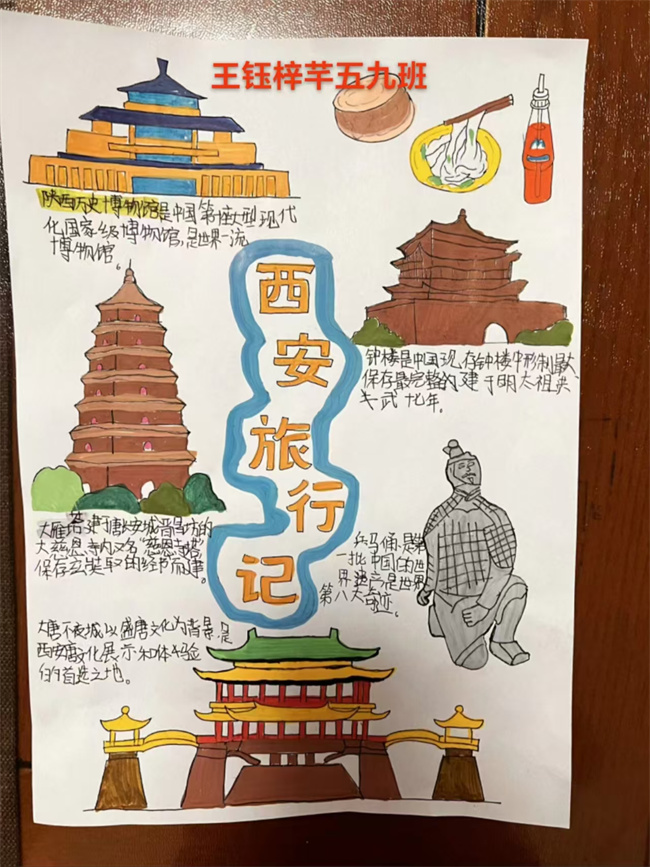 王钰梓芊五九班
陕西历史博物馆是中国第一座大型现代
化国家级博物馆,是世界一流
博物馆。
西安旅行记
钟楼是中国现存钟楼中形制最大
保存最完整的 建于明太祖
武十七年。
大雁塔建于唐长安城晋昌坊的
大慈恩寺内又名“慈恩寺塔”
保存玄奘取的经书而建。
兵马俑是第
一批中国的世
界遗产是世界
第八大奇迹。
大唐不夜城以盛唐文化为背景是
西安唐文化展示和体验
的首选之地。